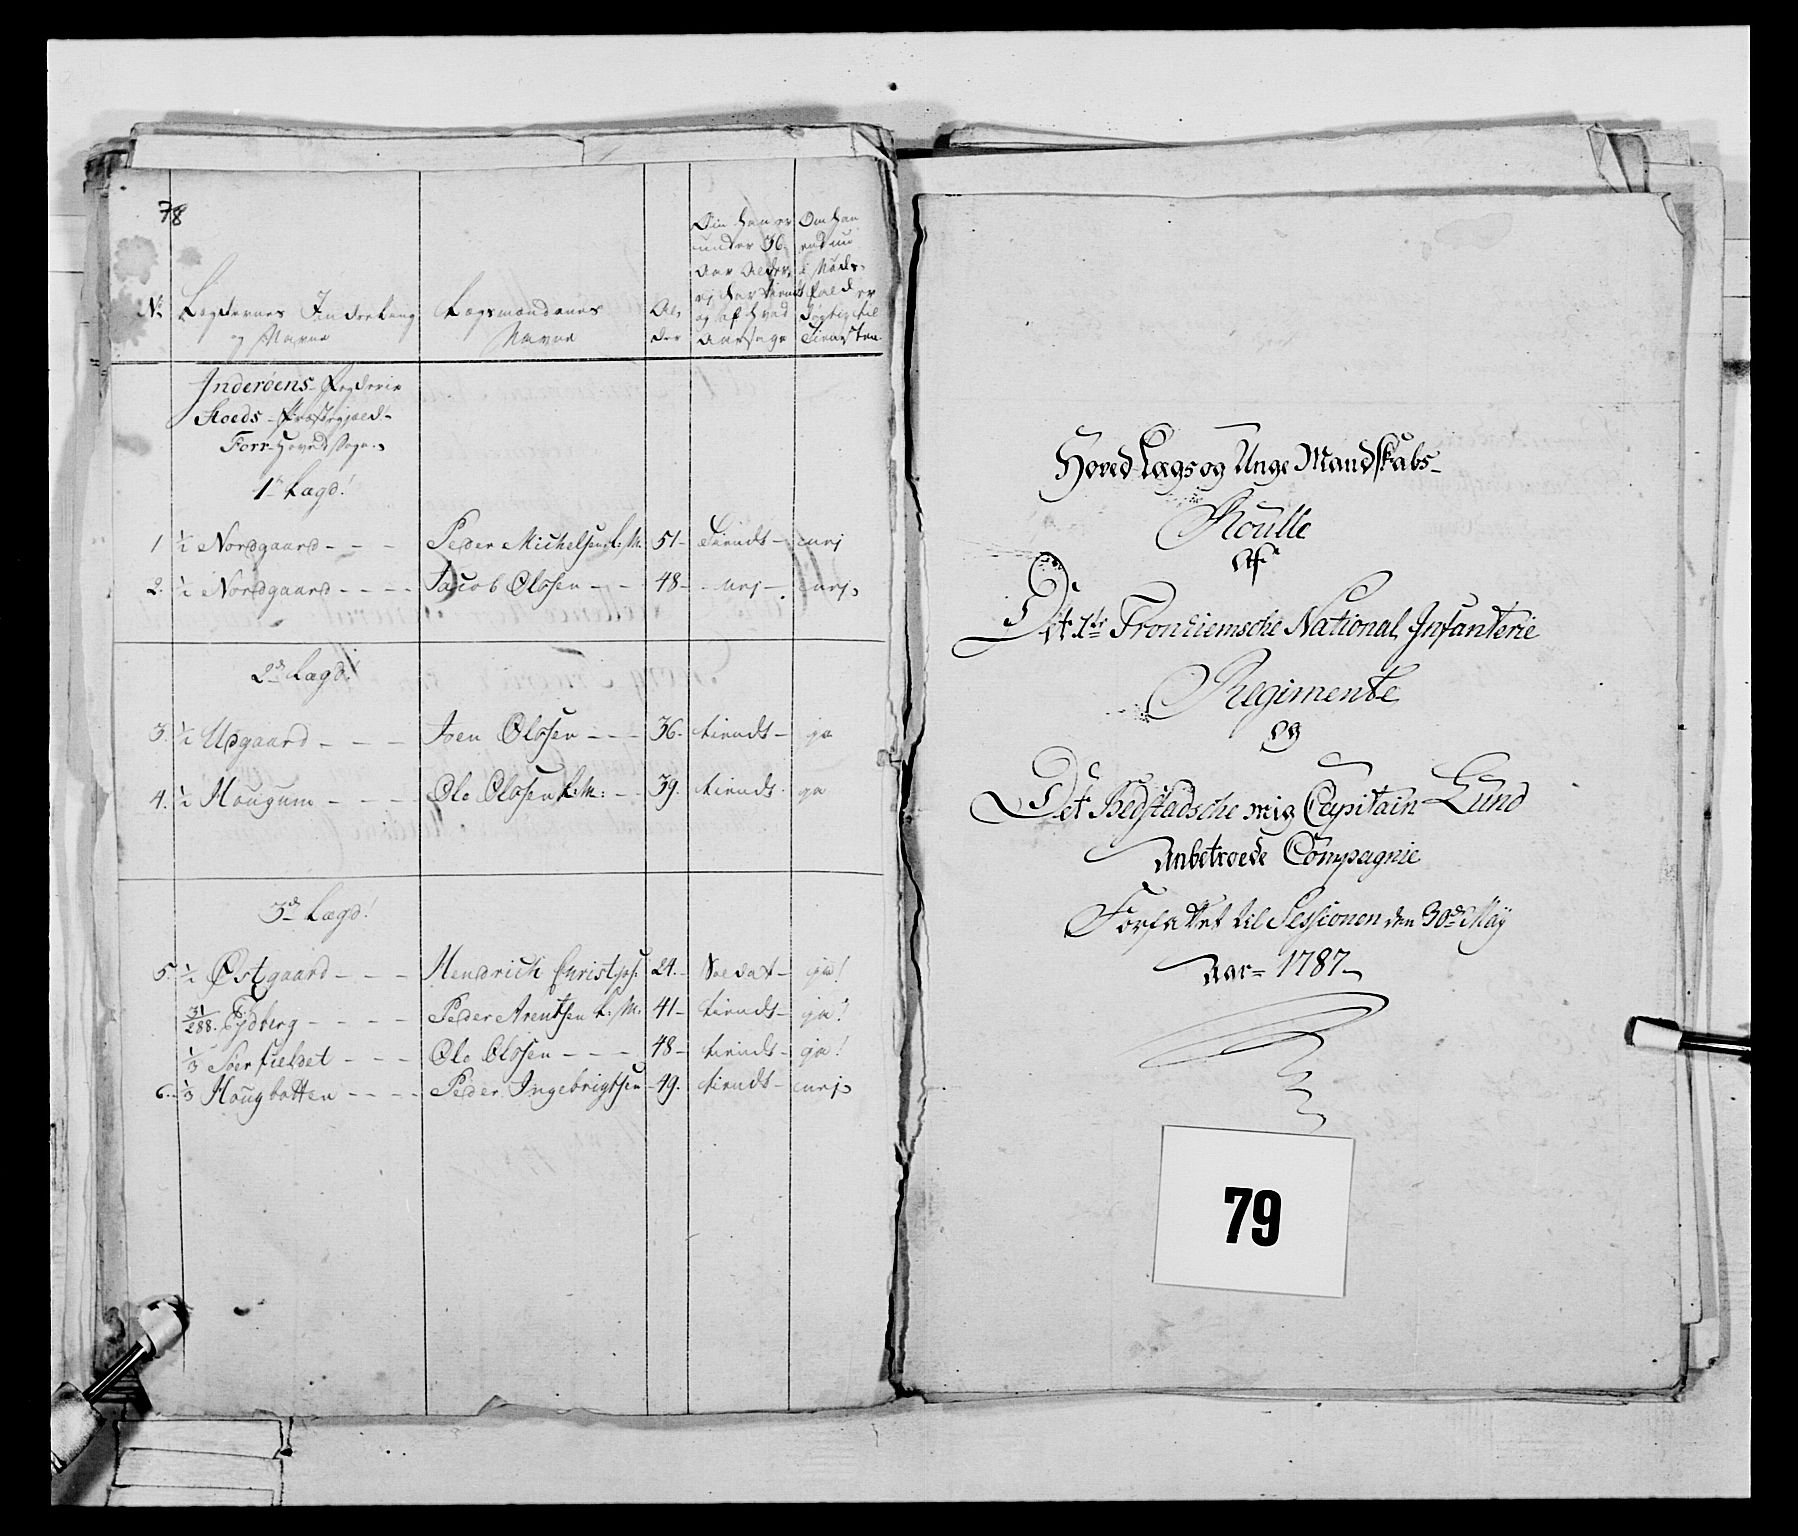 78
No
Lægdernes Inddeeling
og Navne
Lægsmændenes
Navne
Al-
der
Om han er
under 36
Aar Alder,
ej har tiendt
og af hvad
Aarsage
Om han
end nu
i Nøds-
fald er
dygtig til
Tienesten
Inderöens Fogderie
Stoeds Præstegjæld
Forr Hovedsogn
1te Lægd!
1 ½ Nordgaard - - - Peder Michelsen L: M. 51 - Tiendt - nej
2. ½ Nordgaard - - - - Jacob Olssen - - 48 - nej - nej
2de Lægd!
3. ½ Udgaard - - - Joen Olssen - - - 36 - tiendt - ja
4. ½ Hougum - - - Ole Olssen L: M: - - 39. tiendt - ja
3de Lægd!
5. ½ Østgaard - - - Hendrich Christoph: 24. - Soldat - ja!
31/288. Fydberg - - - - Peder Arentsen L: M: 41 - tiendt - ja!
⅓ Søerfieldet - - - Ole Olssen - - - 48 - tiendt - ja!
6. ⅓ Hougbotten - - - - Peder Ingebrigtsen 49. tiendt - nej
Hoved Lægs og Unge Mandskabs-
Roulle
Af
Det 1te Tronhiemsche National Infanterie
Regimente
og
Det Bedstadsche mig Capitain Lund
Anbetroede Compagnie
Forfattet til Sessionen den 30de May
Aar= 1787
79